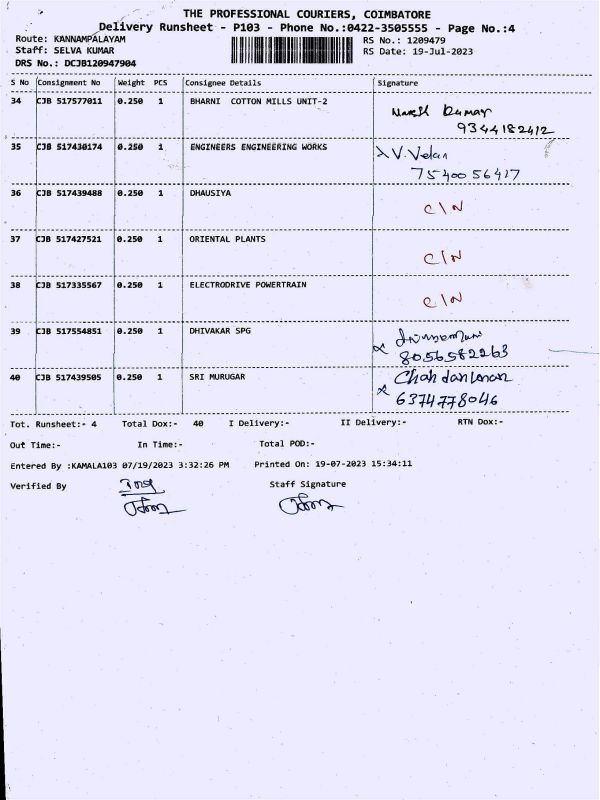 THE PROFESSIONAL COURIERS, COIMBATORE
Delivery Runsheet - P103 - Phone No.:0422-3505555 - Page No.:4
Route: KANNAMPALAYAM RS No.: 1209479
Staff: SELVA KUMAR RS Date: 19-Jul-2023
DRS No.: DCJB120947904
S No Consignment No Weight PCS Consignee Details Signature
34 CJB 517577011 0.250 1 BHARNI COTTON MILLS UNIT-2 Naresh Kumar
9344182412
35 CJB 517430174 0.250 1 ENGINEERS ENGINEERING WORKS V. Velan
7540056417
36 CJB 517439488 0.250 1 DHAUSIYA C/N
37 CJB 517427521 0.250 1 ORIENTAL PLANTS C/N
38 CJB 517335567 0.250 1 ELECTRODRIVE POWERTRAIN C/N
39 CJB 517554851 0.250 1 DHIVAKAR SPG
8056582263
40 CJB 517439505 0.250 1 SRI MURUGAR
6374778046
Tot. Runsheet:- 4 Total Dox:- 40 I Delivery:- II Delivery:- RTN Dox:-
Out Time:- In Time:- Total POD:-
Entered By :KAMALA103 07/19/2023 3:32:26 PM Printed On: 19-07-2023 15:34:11
Verified By Staff Signature